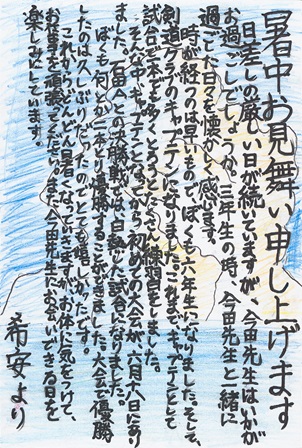 暑中お見舞い申し上げます
日差しの厳しい日が続いていますが、今田先生はいかが
お過ごしでしょうか。三年生の時、今田先生と一緒に
過ごした日々を懐かしく感じます。
時が経つのは早いもので、ぼくも六年生になりました。そして、
剣道クラブのキャプテンになりました。これまで、キャプテンとして
試合で一本でも多くとろうとたくさん練習をしました。
そんな中、キャプテンとなってから初めての大会が六月十八日にあり
ました。石田くんとの決勝戦では白熱した試合になりました。
ぼくも何とか一本とり優勝することができました。大会で優勝
したのは久しぶりだったのでとても嬉しかったです。
これからどんどん暑くなっていきますが、お体に気をつけて、
お仕事を頑張ってください。また今田先生にお会いできる日を
楽しみにしています。
希安より